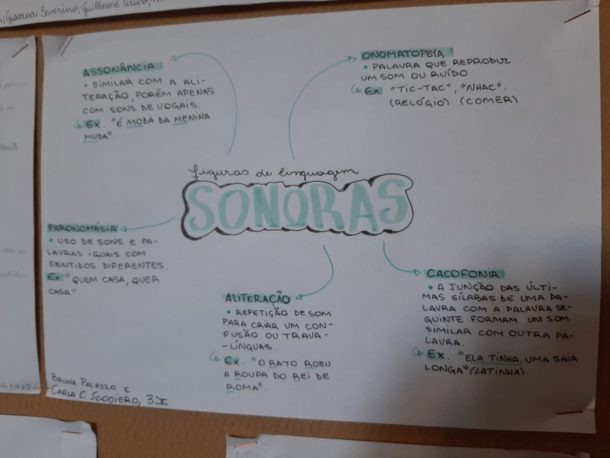 Giovana Severino; Guilherme
ASSONÂNCIA
• SIMILAR COM A ALI-
TERAÇÃO, PORÉM APENAS
COM SONS DE VOGAIS.
Ex. "É MODA DA MENINA
MUDA".
ONOMATOPEIA
• PALAVRA QUE REPRODUZ
UM SOM OU RUÍDO
Ex "TIC-TAC", "NHAC".
(RELÓGIO) (COMER)
figuras de linguagem
SONORAS
PARONOMÁSIA
• USO DE SONS E PA-
LAVRAS IGUAIS COM
SENTIDOS DIFERENTES.
Ex "QUEM CASA, QUER
CASA".
ALITERAÇÃO
• REPETIÇÃO DE SOM
PARA CRIAR UM CON-
FUSÃO OU TRAVA-
-LÍNGUAS.
Ex. "O RATO ROEU
A ROUPA DO REI DE
ROMA".
CACOFONIA
• A JUNÇÃO DAS ÚLTI-
MAS SÍLABAS DE UMA PA-
LAVRA COM A PALAVRA SE-
GUINTE FORMAM UM SOM
SIMILAR COM OUTRA PA-
LAVRA.
Ex. "ELA TINHA UMA SAIA
LONGA" (LATINHA).
BRUNA PALAZZO E
CARLA C. SCODIERO, 3ºI